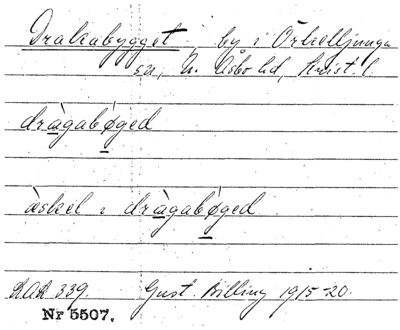 Drakabygget, by i Örkelljunga
sn, N. Åsbo hd, Krist. l.
dràgabøged
àskel i dràgabøged
LAL 339. Gust. Billing 1915-20.
Nr 5507.